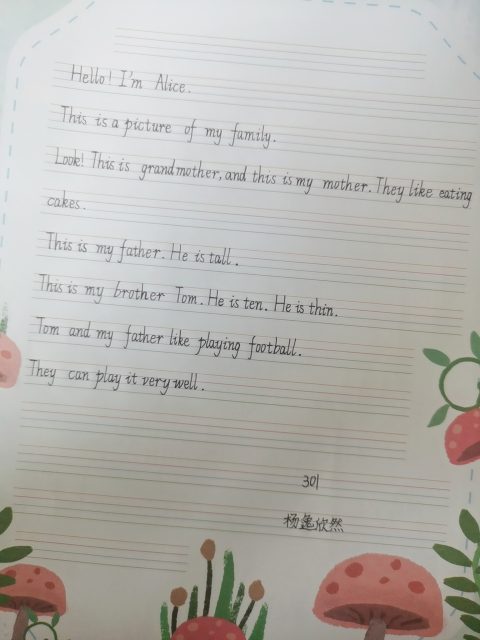 Hello! I'm Alice.
This is a picture of my family.
Look! This is grandmother, and this is my mother. They like eating
cakes.
This is my father. He is tall.
This is my brother Tom. He is ten. He is thin.
Tom and my father like playing football.
They can play it very well.
301
杨欣然